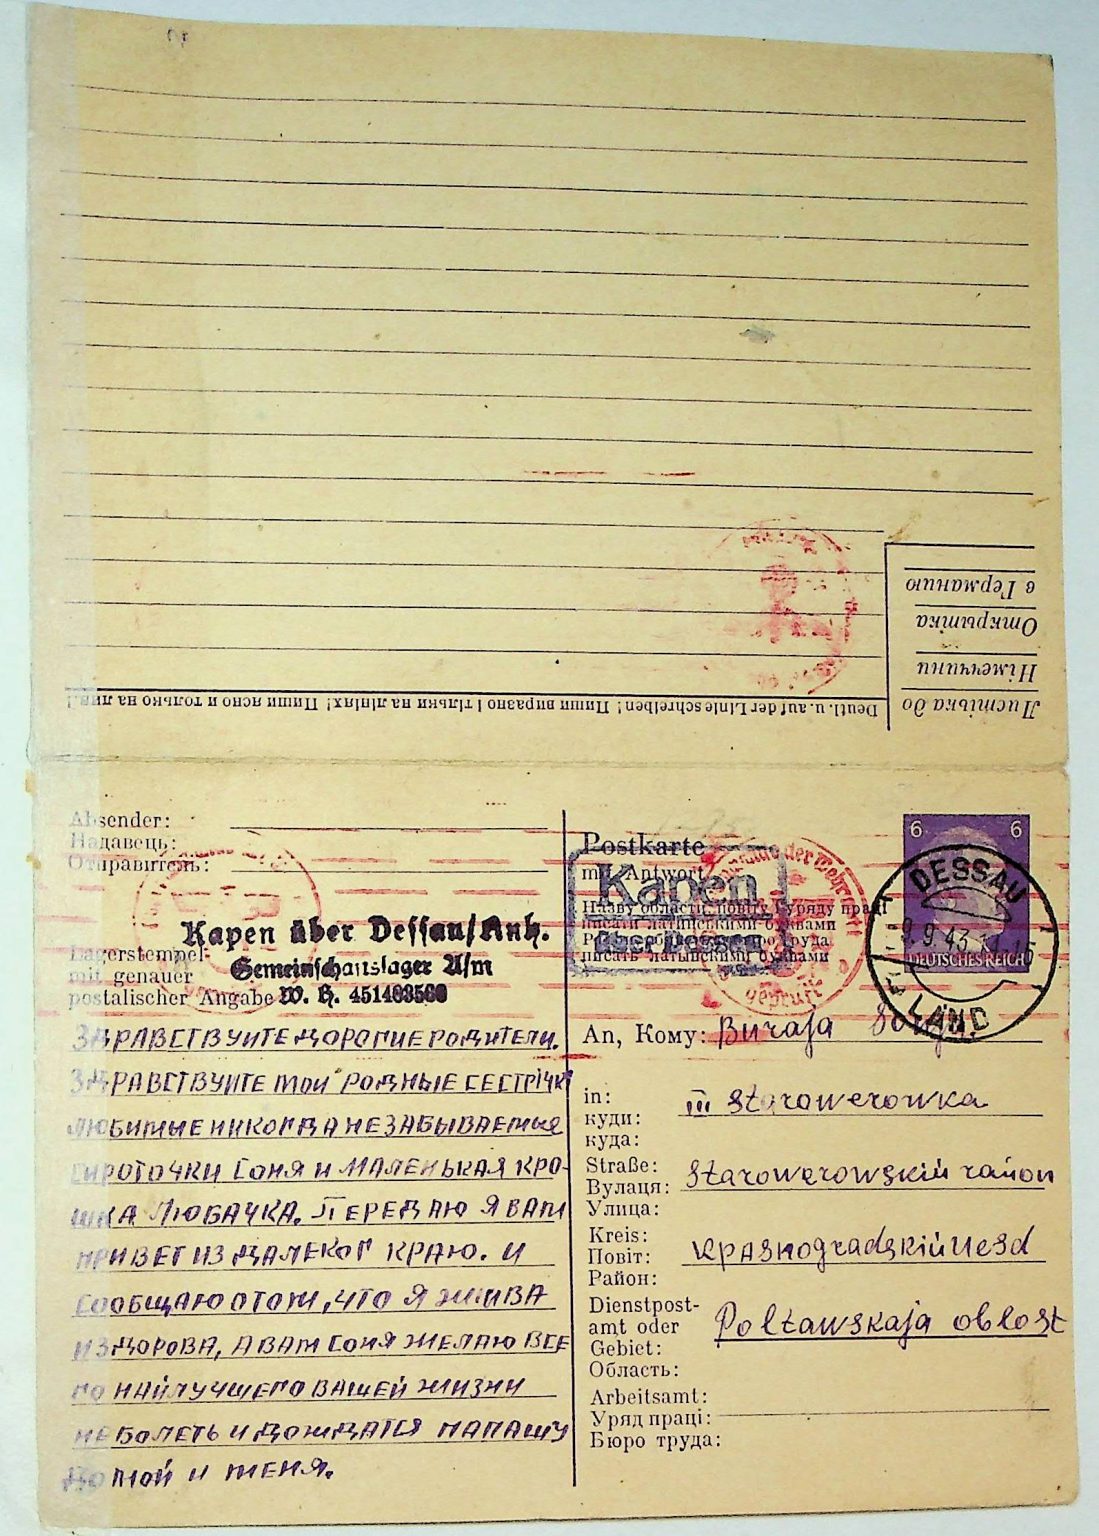 Листівка до
Німеччини
Открытка
в Германию
Deutl. u. auf der Linie schreiben! Пиши виразно і тільки на лініях! Пиши ясно и только на лин.!
Absender:
Надавець:
Отправитель:
Kapen über Dessau/Anh.
Gemeinschaftslager A/m
Lagerstempel-
mit genauer
postalischer Angabe
ЗДРАВСТВУИТЕ ДОРОГИЕ РОДИТЕЛИ.
ЗДРАВСТВУИТЕ МОИ РОДНЫЕ СЕСТРІЧКІ
ЛЮБИМЫЕ НИКОГДА НЕЗАБЫВАЕМЫЕ
СИРОТОЧКИ СОНЯ И МАЛЕНЬКАЯ КРО-
ШКА ЛЮБАЧКА. ПЕРЕДАЮ Я ВАМ
ПРИВЕТ ИЗ ДАЛЕКОГ КРАЮ. И
СООБЩАЮ О ТОМ, ЧТО Я ЖИВА
И ЗДОРОВА, А ВАМ СОНЯ ЖЕЛАЮ ВСЕ
ГО НАЙЛУЧШЕГО ВАШЕЙ ЖИЗНИ
НЕ БОЛЕТЬ И ДОЖДАТСЯ ПАПАШУ
ДОМОЙ И МЕНЯ.
Postkarte
mit Antwort
Kapen
über Dessau
Назву області, повіту й уряду праці
писати латинськими буквами
писать латынскими буквами
geprüft
6 6
DEUTSCHES REICH
DESSAU
9.9.43
LAND
An, Кому: Buraja
in:
куди:
куда:
III Starowerowka
Straße:
Вулаця:
Улица:
Starowerowskiй raион
Kreis:
Повіт:
Район:
Краsnogradskiй uesd
Dienstpost-
amt oder
Gebiet:
Область:
Poltawskaja oblost
Arbeitsamt:
Уряд праці:
Бюро труда: